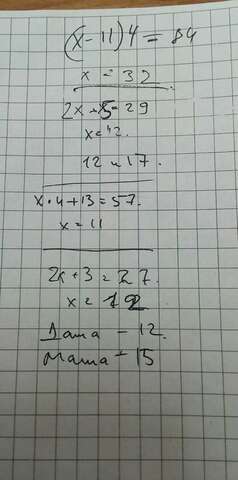 (x-11)4=84
x = 32
2x+5=29
x=12.
12 и 17.
x·4+13=57.
x=11
2x+3=27.
x=12
Даша - 12.
Маша - 15